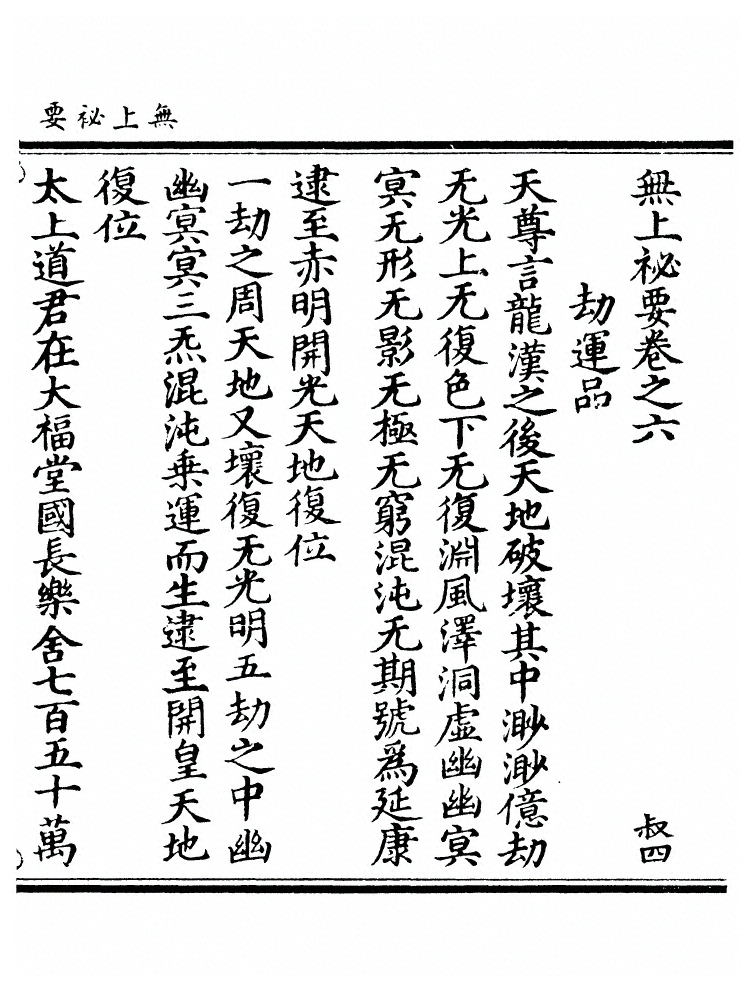 無上祕要
無上祕要卷之六 叔四
劫運品
天尊言龍漢之後天地破壞其中渺渺億劫
无光上无復色下无復淵風澤洞虛幽幽冥
冥无形无影无極无窮混沌无期號為延康
逮至赤明開光天地復位
一劫之周天地又壞復无光明五劫之中幽
幽冥冥三炁混沌乗運而生逮至開皇天地
復位
太上道君在大福堂國長樂舍七百五十萬